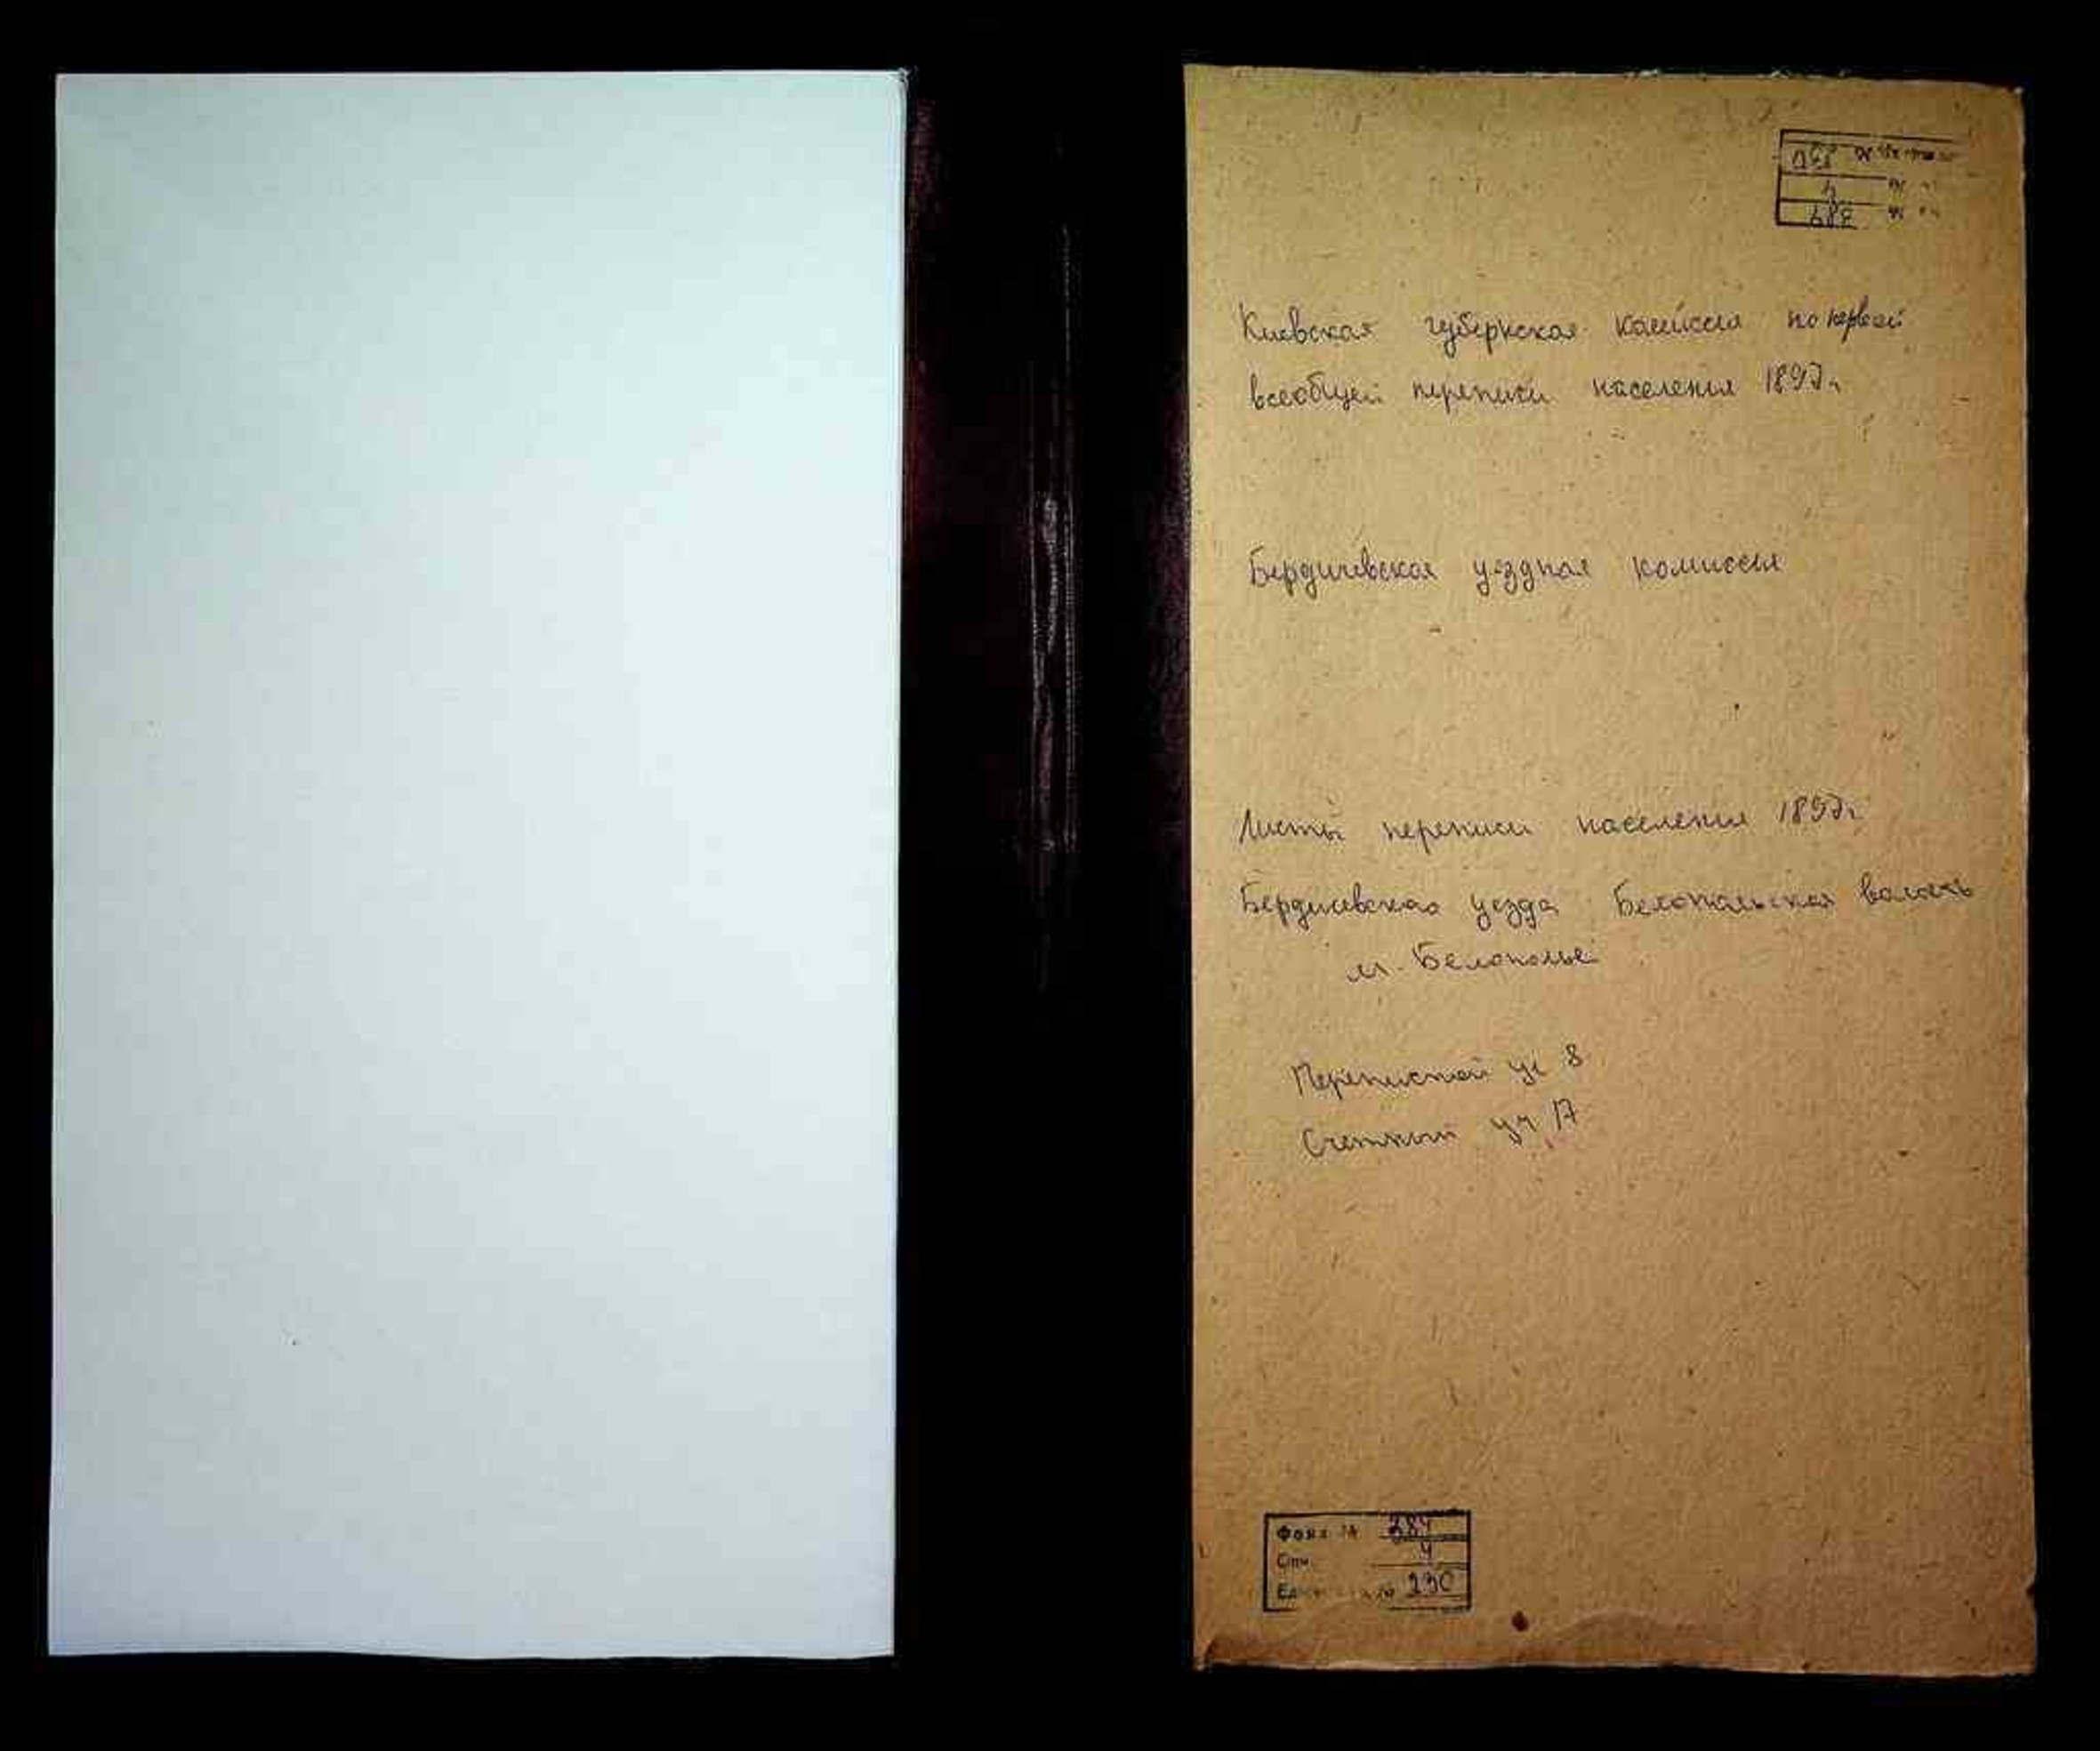 Киевская губернская комиссия по первой
всеобщей переписи населения 1897г.
Бердичевская уездная комиссия
Листы переписи населения 1897г.
Бердичевская уезда Белопольская волость
м. Белополье
Переписной уч 8
Счетный уч 17
Фонд № 384
Опи. 4
№ 230